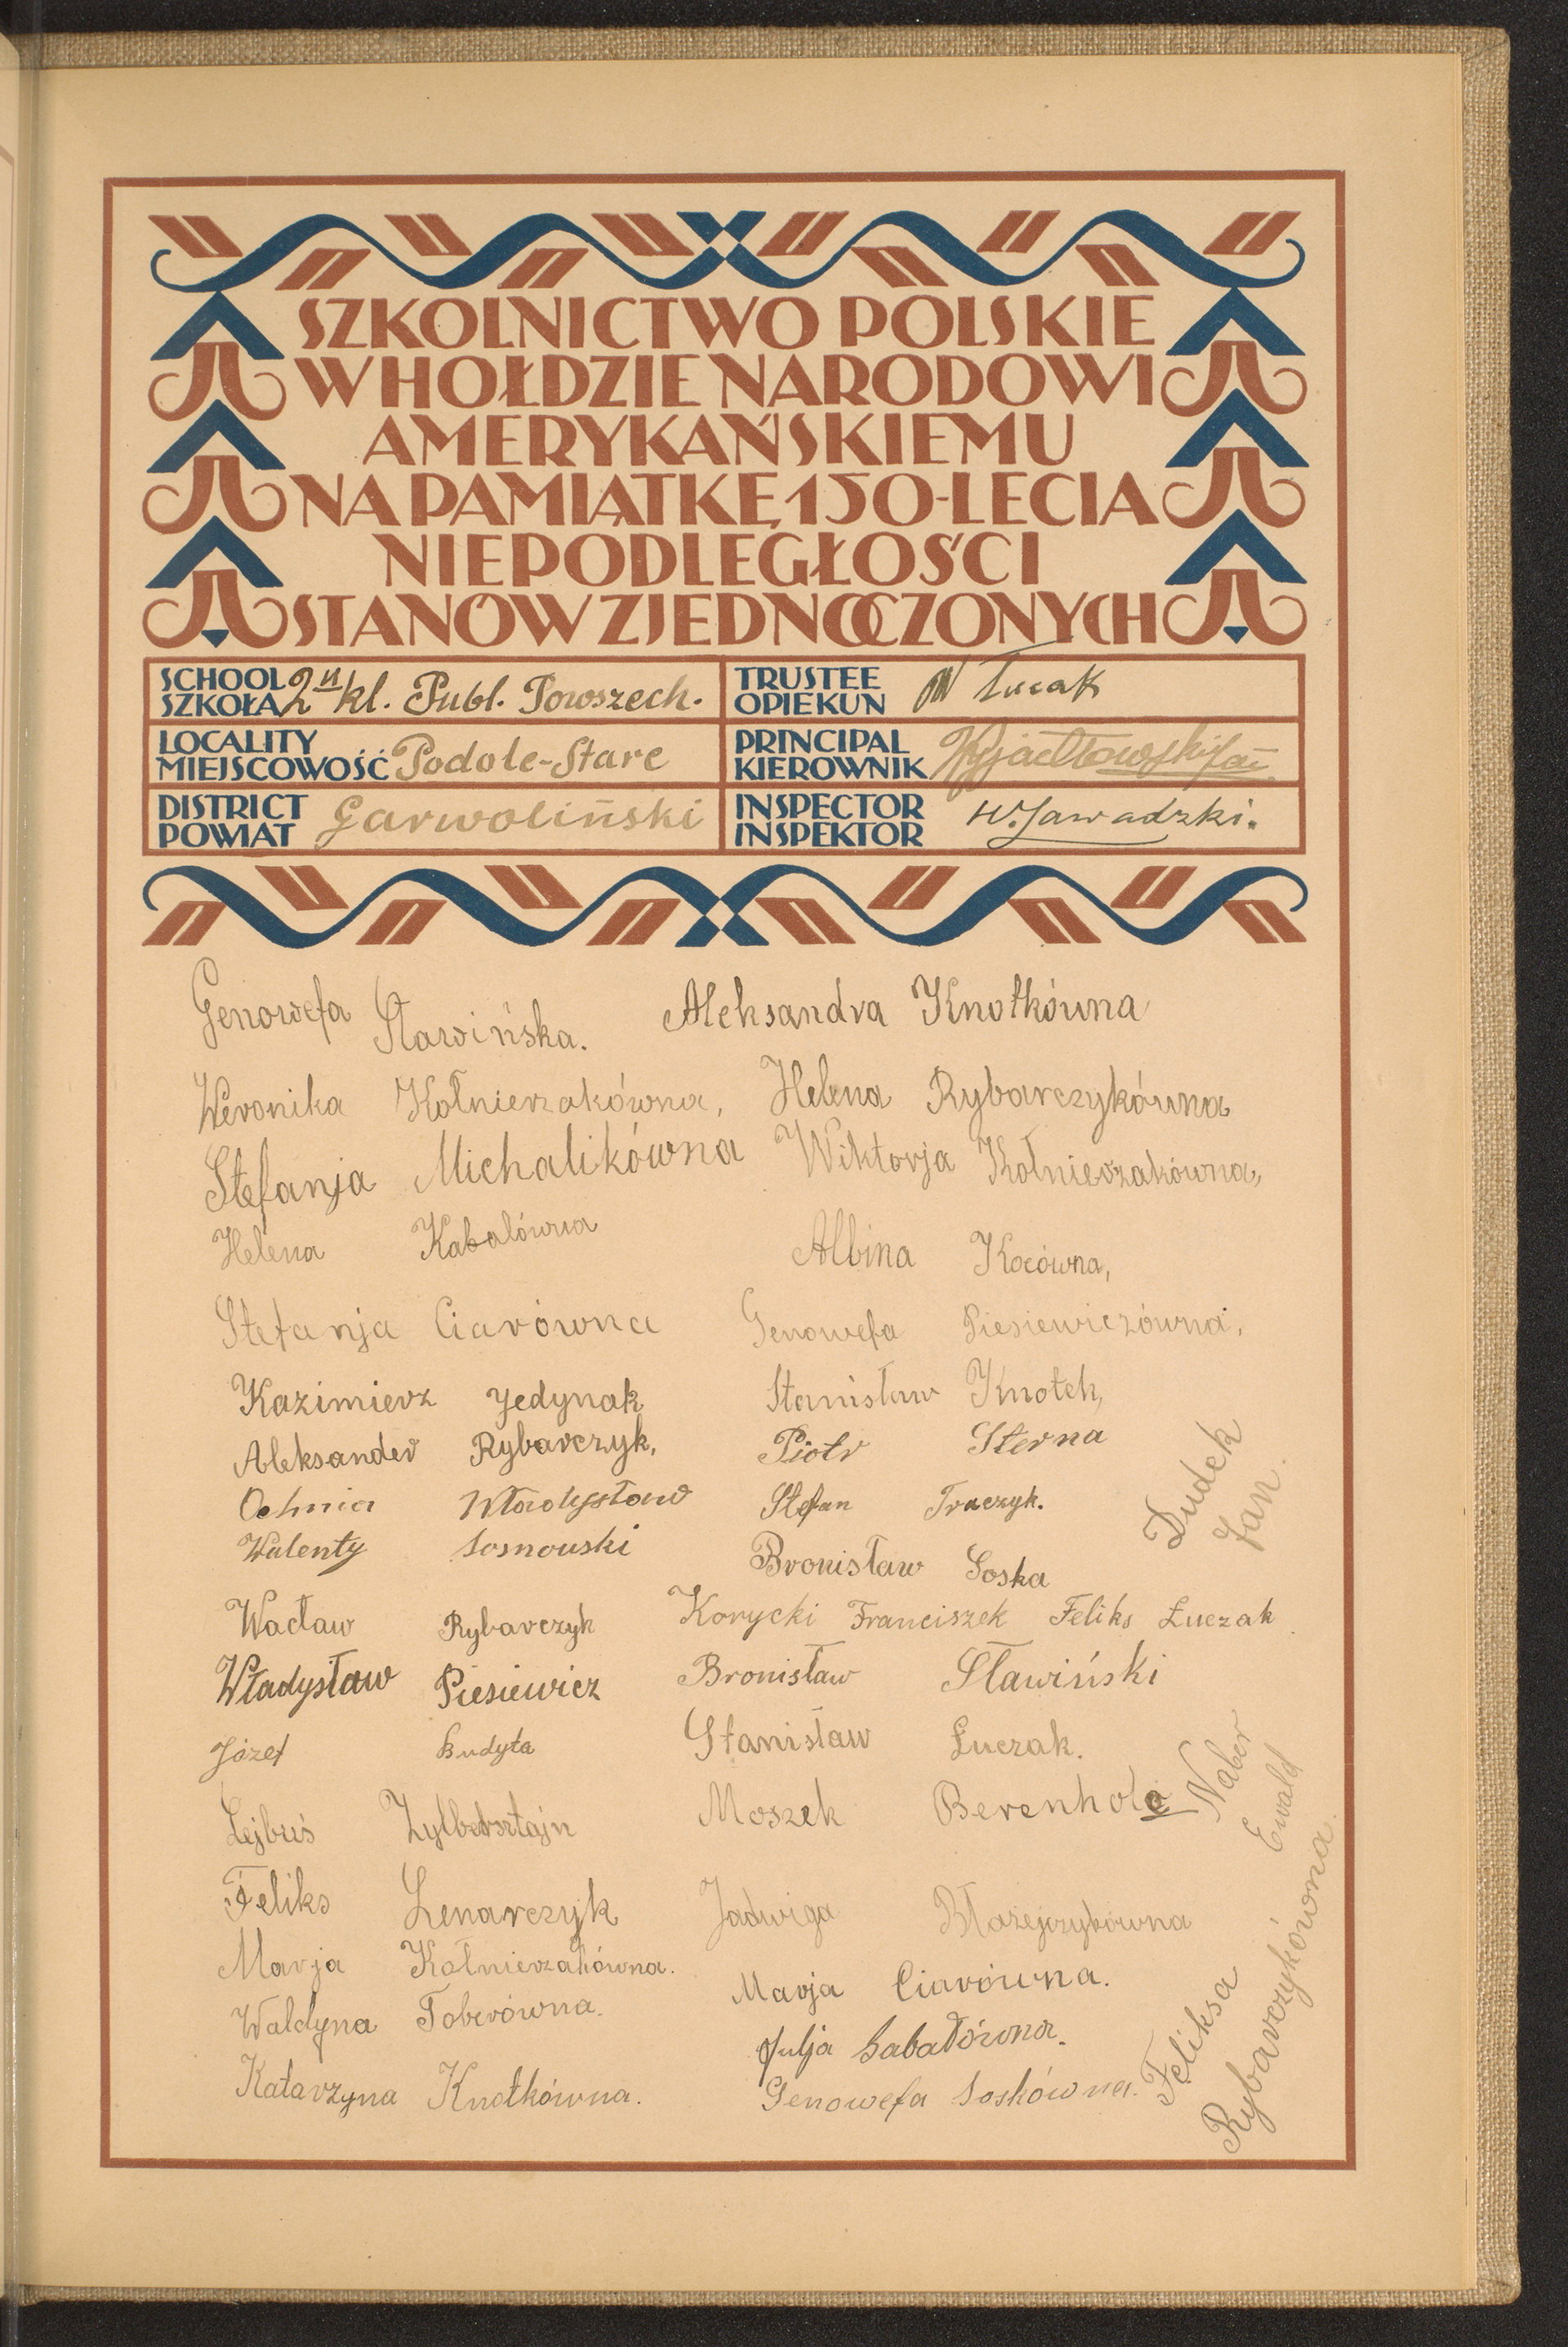 SZKOLNICTWO POLSKIE
W HOŁDZIE NARODOWI
AMERYKAŃSKIEMU
NA PAMIĄTKĘ 150-LECIA
NIEPODLEGŁOŚCI
STANÓW ZJEDNOCZONYCH
SCHOOL
SZKOŁA 2 kl. Publ. Powszech.
TRUSTEE
OPIEKUN
LOCALITY
MIEJSCOWOŚĆ Podole-Stare
PRINCIPAL
KIEROWNIK
DISTRICT
POWIAT Garwoliński
INSPECTOR
INSPEKTOR W. Zawadzki.
Genowefa Sławińska. Aleksandra Knotkówna
Weronika Kołnierzakówna, Helena Rybarczykówna
Stefanja Michalikówna Wiktorja Kołnierzakówna,
Helena Kabalówna Albina Kocówna,
Stefanja Ciarówna Genowefa Piesiewiczówna,
Kazimierz Jedynak Stanisław Knotek,
Aleksander Rybarczyk, Piotr Sterna
Ochnia Władysław Stefan Traczyk.
Walenty Sosnowski Bronisław Soska
Dudek
Jan.
Wacław Rybarczyk Korycki Franciszek Feliks Łuczak
Władysław Piesiewicz Bronisław Sławiński
Józef Budyta Stanisław Łuczak.
Lejbuś Zylbersztajn Moszek Berenholc
Naber
Ewald
Feliks Lenarczyk Jadwiga Błażejczykówna
Marja Kołnierzakówna. Marja Ciarówna.
Waldyna Toberówna. Julja Sabatówna.
Katarzyna Knotkówna. Genowefa Soskówna.
Feliksa
Rybarczykówna.